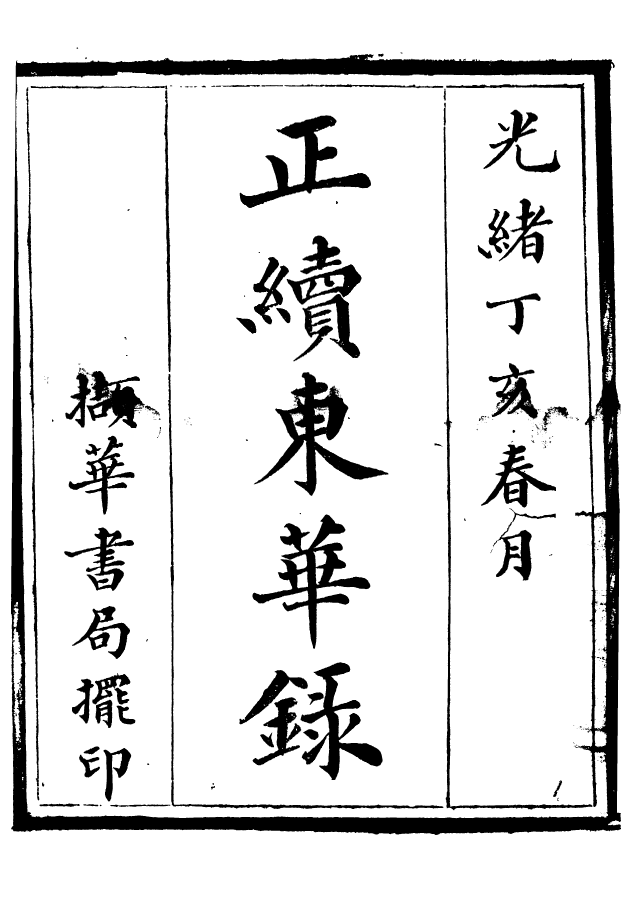 光緒丁亥春月
正續東華錄
擷華書局擺印